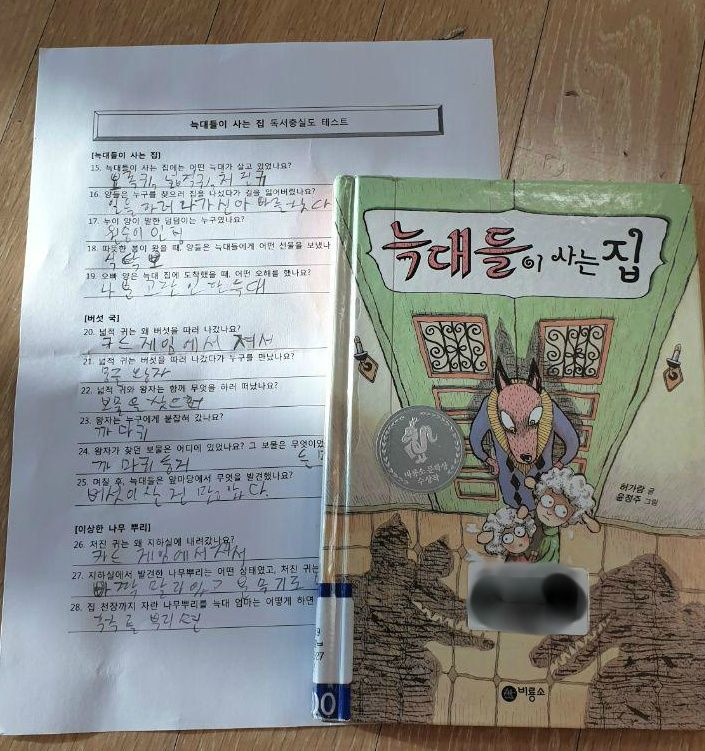 늑대들이 사는 집 독서충실도 테스트
[늑대들이 사는 집]
15. 늑대들이 사는 집에는 어떤 늑대가 살고 있었나요?
뾰족귀, 넓적귀, 처진귀
16. 양들은 누구를 찾으러 집을 나섰다가 길을 잃어버렸나요?
나가신 아빠를 찾다
17. 누이 양이 말한 덤덤이는 누구였나요?
18. 따뜻한 봄이 왔을 때, 양들은 늑대들에게 어떤 선물을 보냈나
19. 오빠 양은 늑대 집에 도착했을 때, 어떤 오해를 했나요?
나쁜 늑대
[버섯 국]
20. 넓적 귀는 왜 버섯을 따러 나갔나요?
카드 게임에서 져서
21. 넓적 귀는 버섯을 따러 나갔다가 누구를 만났나요?
22. 넓적 귀와 왕자는 함께 무엇을 하러 떠났나요?
보물을 찾으러
23. 왕자는 누구에게 붙잡혀 갔나요?
까마귀
24. 왕자가 찾던 보물은 어디에 있었나요? 그 보물은 무엇이었
까마귀 둥지
25. 며칠 후, 늑대들은 앞마당에서 무엇을 발견했나요?
[이상한 나무 뿌리]
26. 처진 귀는 왜 지하실에 내려갔나요?
카드 게임에서 져서
27. 지하실에서 발견한 나무뿌리는 어떤 상태였고, 처진 귀는
28. 집 천장까지 자란 나무뿌리를 늑대 엄마는 어떻게 하면
늑대들이 사는 집
비룡소 문학상
수상작
허가람 글
윤정주 그림
비룡소